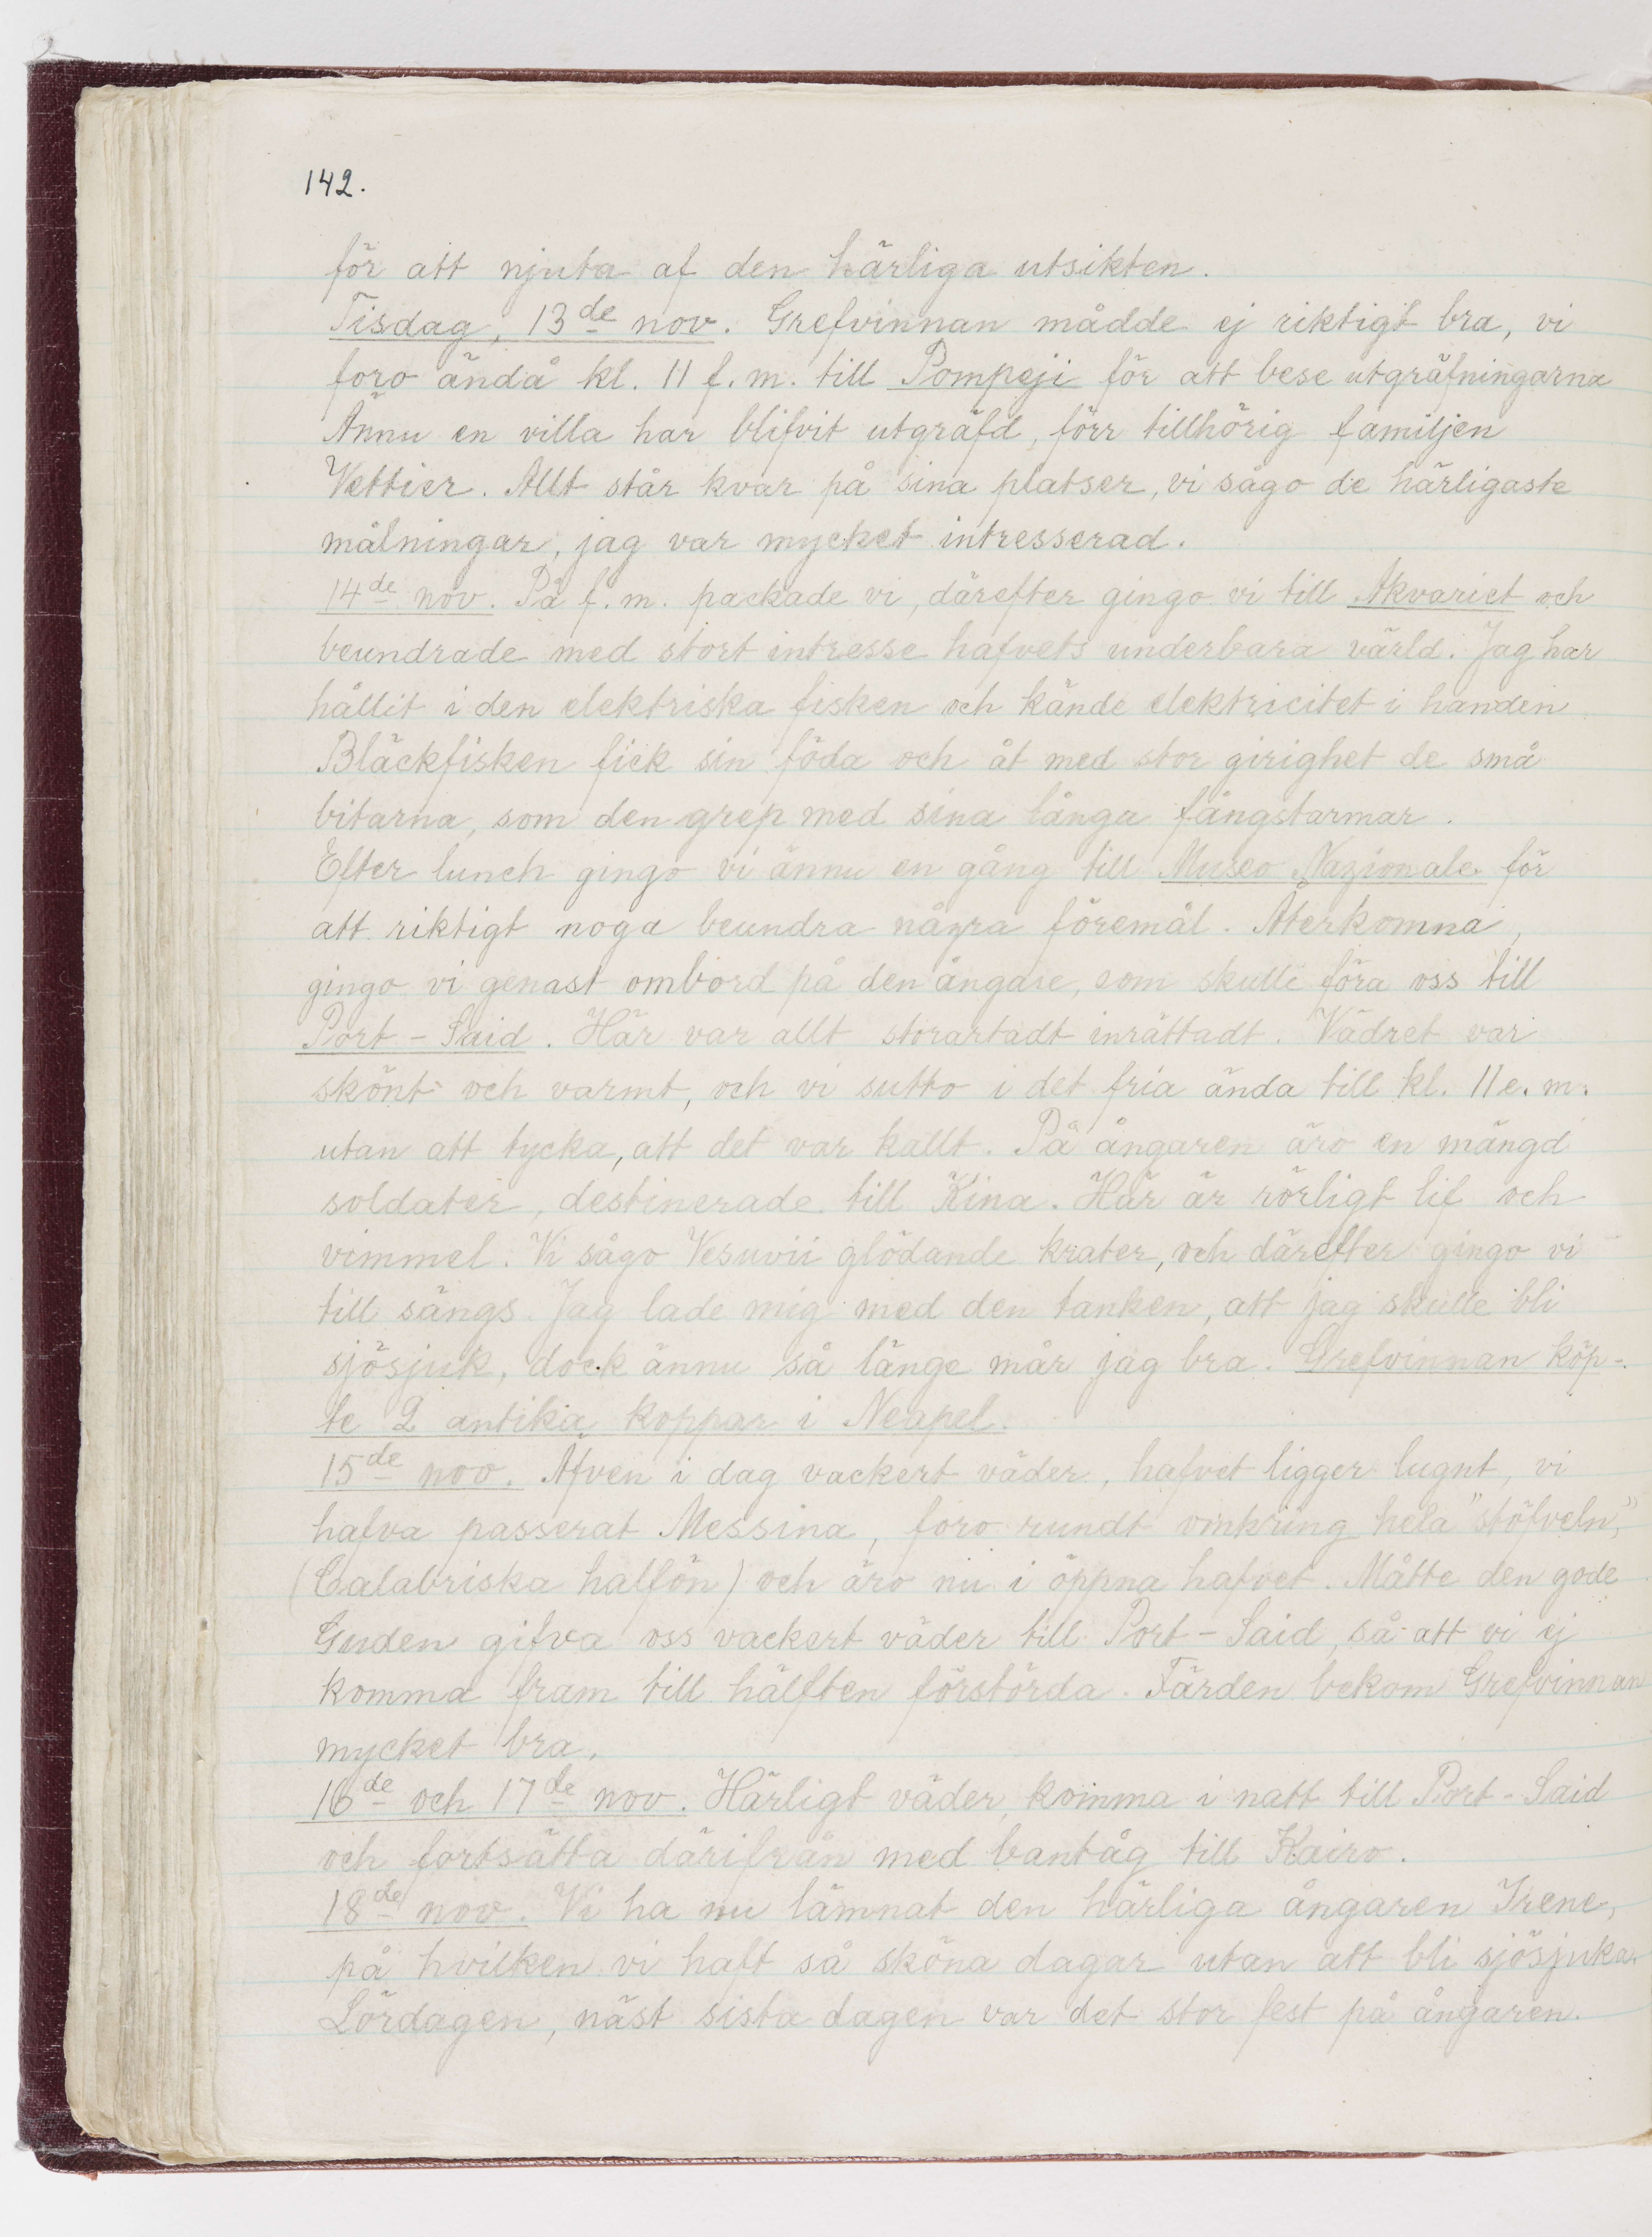 142.
för att njuta af den härliga utsikten.
Tisdag, 13de nov. Grefvinnan mådde ej riktigt bra, vi
foro ändå kl. 11 f.m. till Pompeji för att bese utgräfningarna
Ännu en villa har blifvit utgräfd, förr tillhörig familjen
Vettier. Allt står kvar på sina platser, vi sågo de härligaste
målningar, jag var mycket intresserad.
14de nov. På f.m. packade vi, därefter gingo vi till Akvariet och
beundrade med stort intresse hafvets underbara värld. Jag har
hållit i den elektriska fisken och kände elektricitet i handen
Bläckfisken fick sin föda och åt med stor girighet de små
bitarna, som den grep med sina långa fångstarmar.
Efter lunch gingo vi ännu en gång till Museo Nazionale för
att riktigt noga beundra några föremål. Återkomna,
gingo vi genast ombord på den ångare, som skulle föra oss till
Port-Said. Här var allt storartadt inrättadt. Vädret var
skönt och varmt, och vi sutto i det fria ända till kl. 11 e.m.
utan att tycka, att det var kallt. På ångaren äro en mängd
soldater, destinerade till Kina. Här är rörligt lif och
vimmel. Vi sågo Vesuvii glödande krater, och därefter gingo vi
till sängs. Jag lade mig med den tanken, att jag skulle bli
sjösjuk, dock ännu så länge mår jag bra. Grefvinnan köp-
te 2 antika koppar i Neapel.
15de nov. Äfven i dag vackert väder, hafvet ligger lugnt, vi
hafva passerat Messina, foro rundt omkring hela "stöfveln",
(Calabriska halfön) och äro nu i öppna hafvet. Måtte den gode
Guden gifva oss vackert väder till Port-Said, så att vi ej
komma fram till hälften förstörda. Färden bekom Grefvinnan
mycket bra.
16de och 17de nov. Härligt väder, komma i natt till Port-Said
och fortsätta därifrån med bantåg till Kairo.
18de nov. Vi ha nu lämnat den härliga ångaren Irene,
på hvilken vi haft så sköna dagar utan att bli sjösjuka.
Lördagen, näst sista dagen var det stor fest på ångaren.